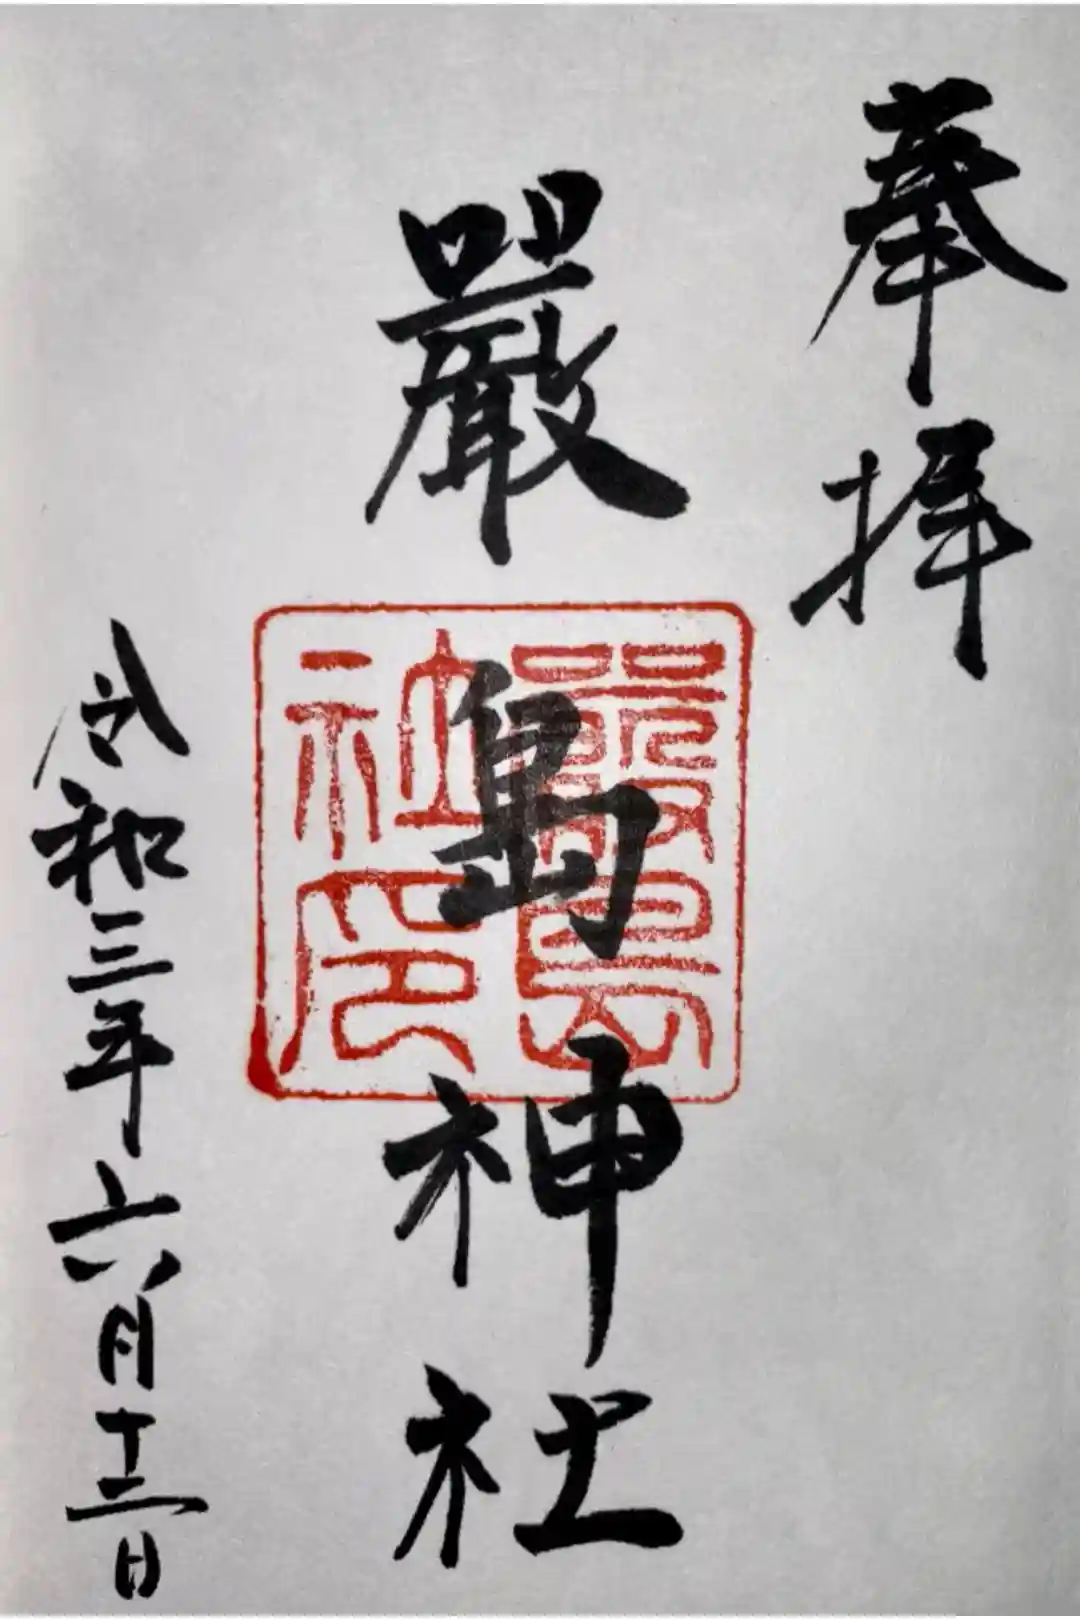 奉拝
嚴島神社
嚴島
社印
令和三年六月十二日